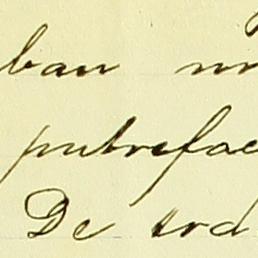 ban
putrefac
De ord